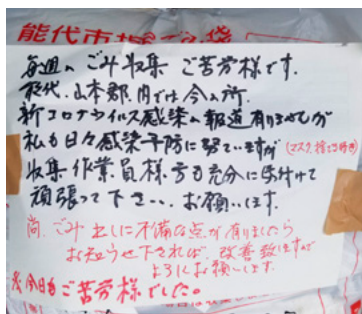 能代市
毎週のごみ収集 ご苦労様です。
能代、山本郡内では今の所、
新コロナウイルス感染の報道有りませんが
私も日々感染予防に努ていますが(マスク、捨てる時も)
収集作業員様方も充分に気付けて
頑張って下さい、お願いします。
尚、ごみ出しに不備な点が有りましたら
お知らせ下されば、改善致しますので
よろしくお願いします。
今日もご苦労様でした。